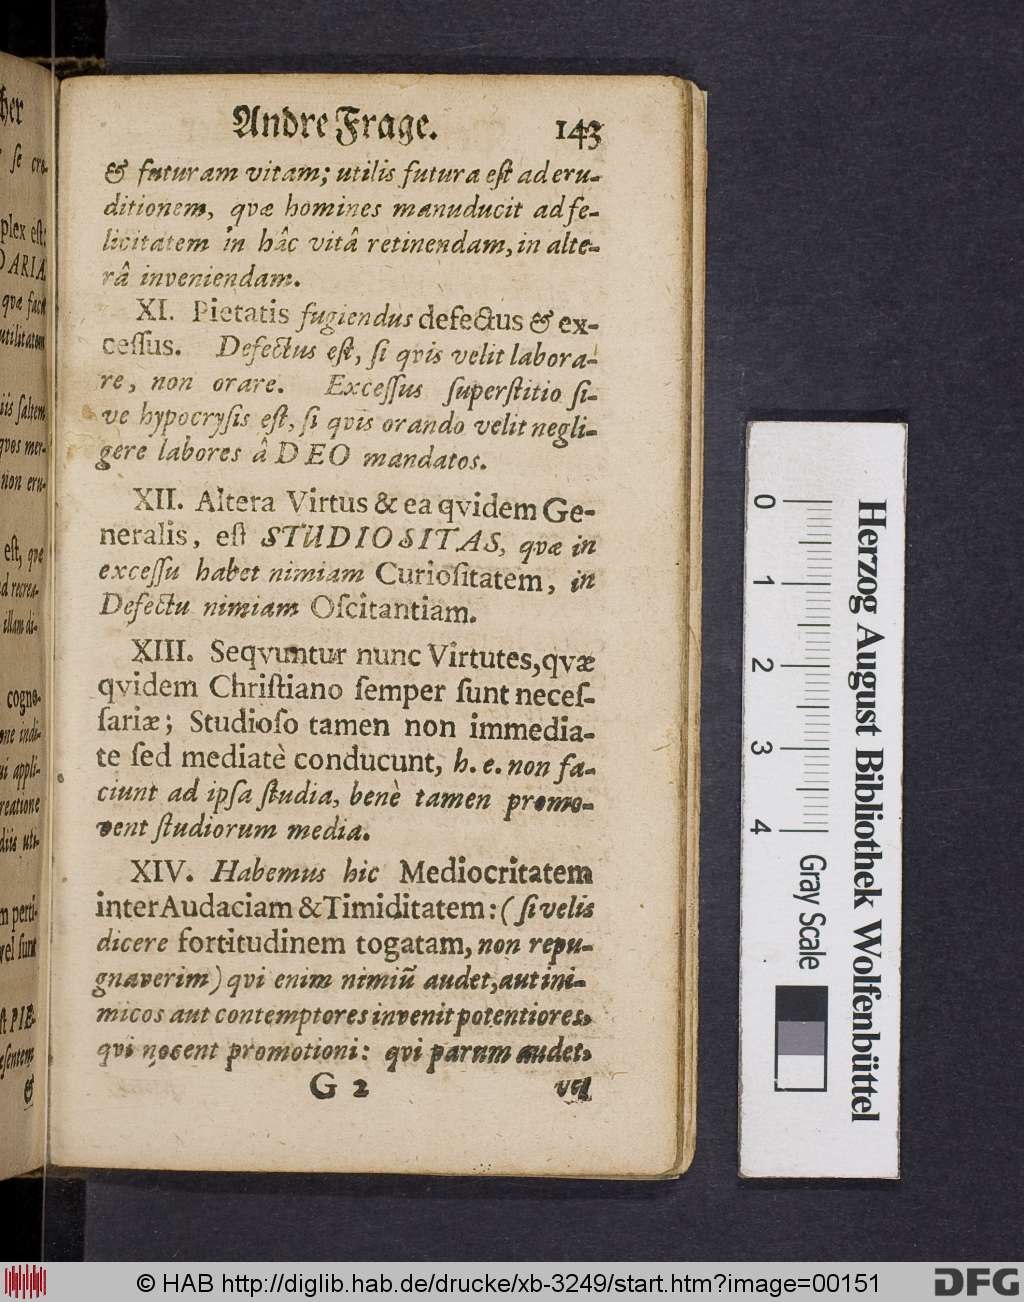 Andre Frage. 143
& futuram vitam; utilis futura est ad eru-
ditionem, qvæ homines manuducit ad fe-
licitatem in hâc vitâ retinendam, in alte-
râ inveniendam.
XI. Pietatis fugiendus defectus & ex-
cessus. Defectus est, si qvis velit labora-
re, non orare. Excessus superstitio si-
ve hypocrysis est, si qvis orando velit negli-
gere labores â DEO mandatos.
XII. Altera Virtus & ea qvidem Ge-
neralis, est STUDIOSITAS, qvæ in
excessu habet nimiam Curiositatem, in
Defectu nimiam Oscitantiam.
XIII. Seqvuntur nunc Virtutes, qvæ
qvidem Christiano semper sunt neces-
sariæ; Studioso tamen non immedia-
te sed mediatè conducunt, h. e. non fa-
ciunt ad ipsa studia, benè tamen promo-
vent studiorum media.
XIV. Habemus hic Mediocritatem
inter Audaciam & Timiditatem: (si velis
dicere fortitudinem togatam, non repu-
gnaverim) qvi enim nimiũ audet, aut ini-
micos aut contemptores invenit potentiores,
qvi nocent promotioni: qvi parum audet,
G 2 vel
her
se cro-
plex est:
DARIA,
qvæ faci
utilitatem
iis saltem
qvos mer-
non eru-
est, qvæ
d recrea-
illam di-
cogno-
one indi-
ui appli-
reatione
diis uti-
m perti-
vel sunt
st PIE-
esentem
&
0 1 2 3 4
Gray Scale
Herzog August Bibliothek Wolfenbüttel
© HAB http://diglib.hab.de/drucke/xb-3249/start.htm?image=00151
DFG